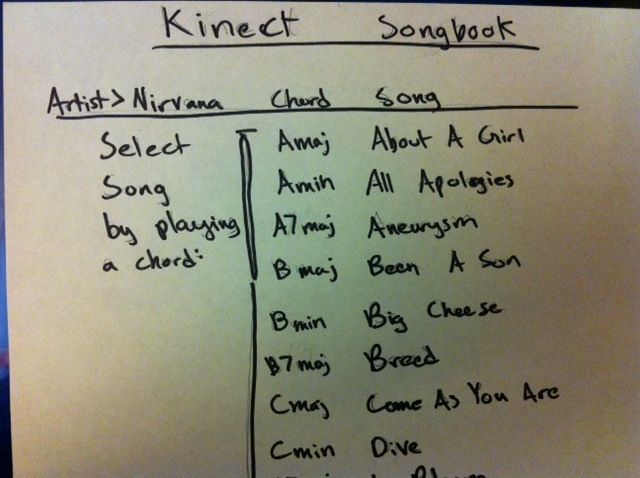 Kinect Songbook
Artist> Nirvana Chord Song
Select
Song
by playing
a chord:
Amaj About A Girl
Amin All Apologies
A7maj Aneurysm
Bmaj Been A Son
Bmin Big Cheese
B7maj Breed
Cmaj Come As You Are
Cmin Dive